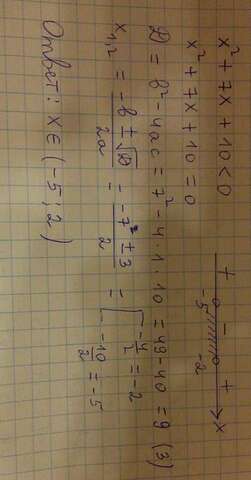 x² + 7x + 10 < 0
x² + 7x + 10 = 0
D = b² - 4ac = 7² - 4 · 1 · 10 = 49 - 40 = 9 (3)
x₁,₂ = (-b ± √D)/2a = (-7 ± 3)/2 = [ -4/2 = -2
-10/2 = -5
+ - + x
-5 -2
Ответ: x ∈ (-5; 2)